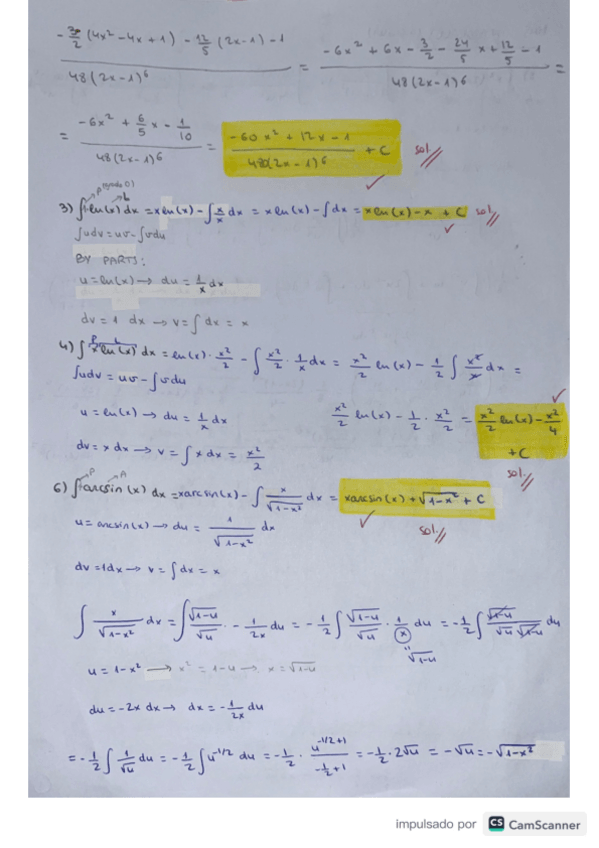 -3/2 (4x² - 4x + 1) - 12/5 (2x - 1) - 1 / 48(2x-1)⁶ = -6x² + 6x - 3/2 - 24/5 x + 12/5 - 1 / 48(2x-1)⁶ =
= -6x² + 6/5 x - 1/10 / 48(2x-1)⁶ = -60x² + 12x - 1 / 480(2x-1)⁶ + C sol.
P (grado 0) L
3) ∫1·ln(x) dx = x ln(x) - ∫ x/x dx = x ln(x) - ∫dx = x ln(x) - x + C sol.
∫udv = uv - ∫vdu
BY PARTS:
u = ln(x) → du = 1/x dx
dv = 1 dx → v = ∫dx = x
P L
4) ∫x ln(x) dx = ln(x) · x²/2 - ∫ x²/2 · 1/x dx = x²/2 ln(x) - 1/2 ∫ x²/x dx =
∫udv = uv - ∫vdu
u = ln(x) → du = 1/x dx x²/2 ln(x) - 1/2 · x²/2 = x²/2 ln(x) - x²/4 + C
dv = x dx → v = ∫x dx = x²/2 sol.
P A
6) ∫1·arcsin(x) dx = x arcsin(x) - ∫ x/√(1-x²) dx = x arcsin(x) + √(1-x²) + C
u = arcsin(x) → du = 1/√(1-x²) dx sol.
dv = 1dx → v = ∫dx = x
∫ x/√(1-x²) dx = ∫ √(1-u)/√u · - 1/2x du = -1/2 ∫ √(1-u)/√u · 1/x du = -1/2 ∫ √(1-u)/(√u √(1-u)) du
" √(1-u)
u = 1-x² → x² = 1-u → x = √(1-u)
du = -2x dx → dx = -1/2x du
= -1/2 ∫ 1/√u du = -1/2 ∫u^(-1/2) du = -1/2 · u^(-1/2+1)/(-1/2+1) = -1/2 · 2√u = -√u = -√(1-x²)
impulsado por CS CamScanner